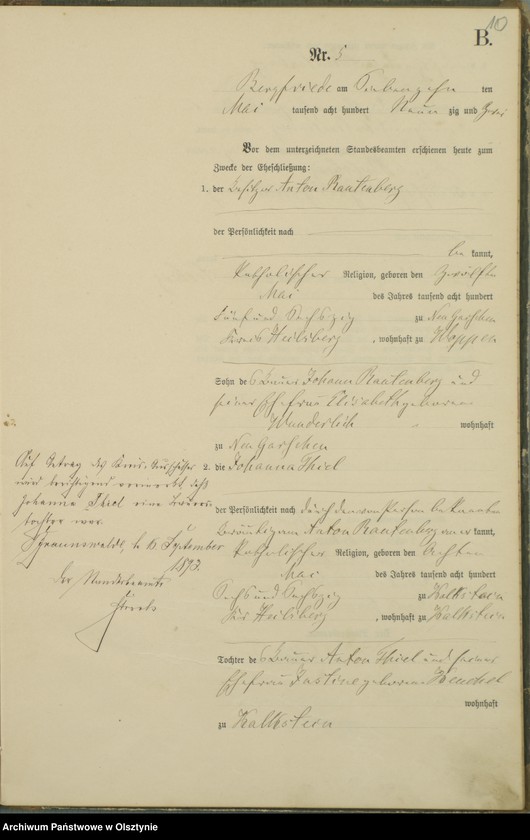 10
B.
Nr. 5
Bergfriede am Siebenzehn ten
Mai tausend acht hundert Neun zig und Zwei
Vor dem unterzeichneten Standesbeamten erschienen heute zum
Zwecke der Eheschließung:
1. der Besitzer Anton Rautenberg
der Persönlichkeit nach
be kannt,
katholischer Religion, geboren den Zwölften
Mai des Jahres tausend acht hundert
Fünf und Sechszig zu Neu Garschen
Kreis Heilsberg, wohnhaft zu Woppen
Sohn des Bauer Johann Rautenberg und
seiner Ehefrau Elisabeth geborene
Wunderlich wohnhaft
zu Neu Garschen
2. die Johanna Thiel
der Persönlichkeit nach durch den von Person bekannten
Bräutigam Anton Rautenberg aner kannt,
katholischer Religion, geboren den Achten
Mai des Jahres tausend acht hundert
Sechs und Sechszig zu Kalkstein
Kreis Heilsberg, wohnhaft zu Kalkstein
Tochter des Bauer Anton Thiel und seiner
Ehefrau Justine geborene Henschel
wohnhaft
zu Kalkstein
Auf Antrag des
wird berichtigend vermerkt daß
Johanna Thiel eine
tochter war.
den 15 September
1893.
Der Standesbeamte
Archiwum Państwowe w Olsztynie